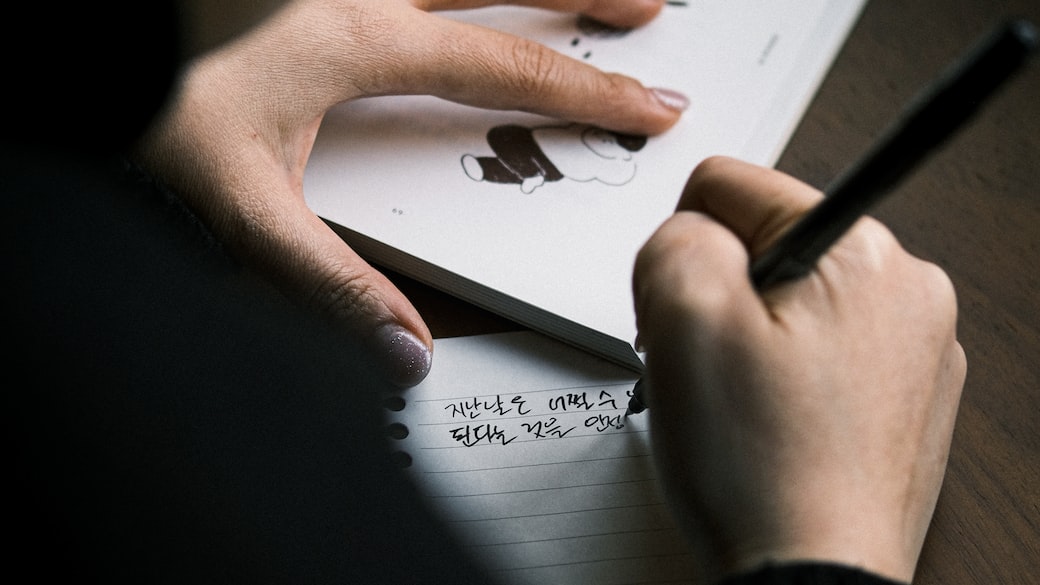 지난날은 어쩔 수
된다는 것을 인정